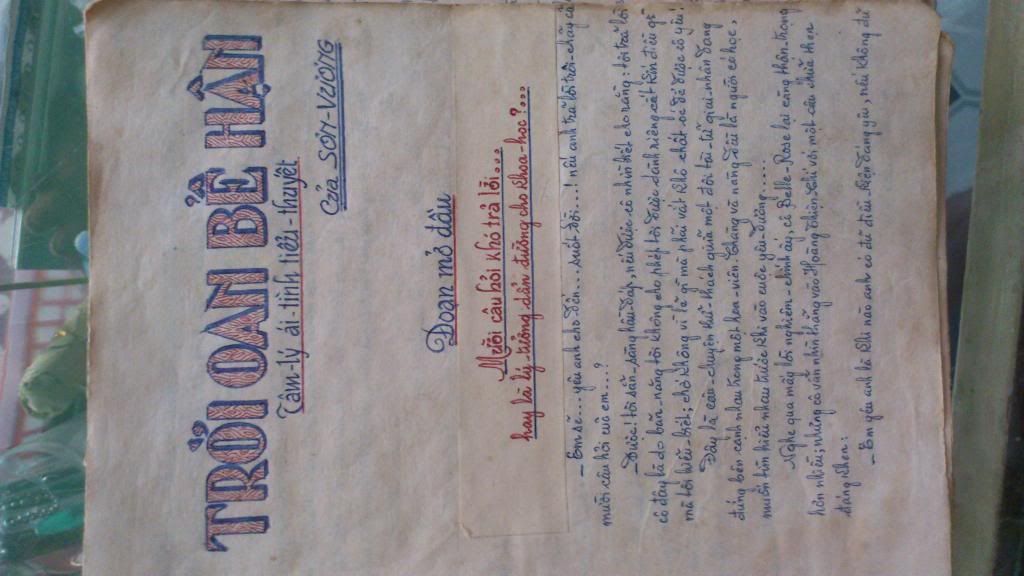 TRỜI OAN BỂ HẬN
Tâm-lý ái-tình tiểu-thuyết
Của SƠN-VƯƠNG
Đoạn mở đầu
Mười câu hỏi khó trả lời...
hay là lý-tưởng dẫn đường cho khoa-học?...
– Em sẽ... yêu anh cho đến... suốt đời...! nếu anh trả lời trôi-chảy cả
mười câu hỏi của em....?
– Được! tôi sẵn-sàng hầu đáp, nếu được cô nhìn biết cho rằng: tôi trả lời
cô đây là do bản-năng tôi không cho phép tôi được dành riêng cất kín điều gì
mà tôi hiểu-biết; chớ không vì lẽ gì mà phải vượt khó-chất để được cô yêu!
Đây là câu-chuyện thử-thách giữa một đôi tài-tử giai-nhân đang
đứng bên cạnh nhau trong một hoa-viên. Chàng và nàng đều là người có học,
muốn tìm hiểu nhau trước khi vào cuộc yêu-đương.....
Nghe qua mấy lời nghiêm-chỉnh ấy, cô Belle-Rose lại càng thận-trọng
hơn nhiều; nhưng cô vẫn nhìn thẳng vào Hoàng-thiện-Chí với một câu chứa then
đáng khen:
– Em yêu anh là khi nào anh có đủ điều-kiện đáng yêu, nếu không đủ